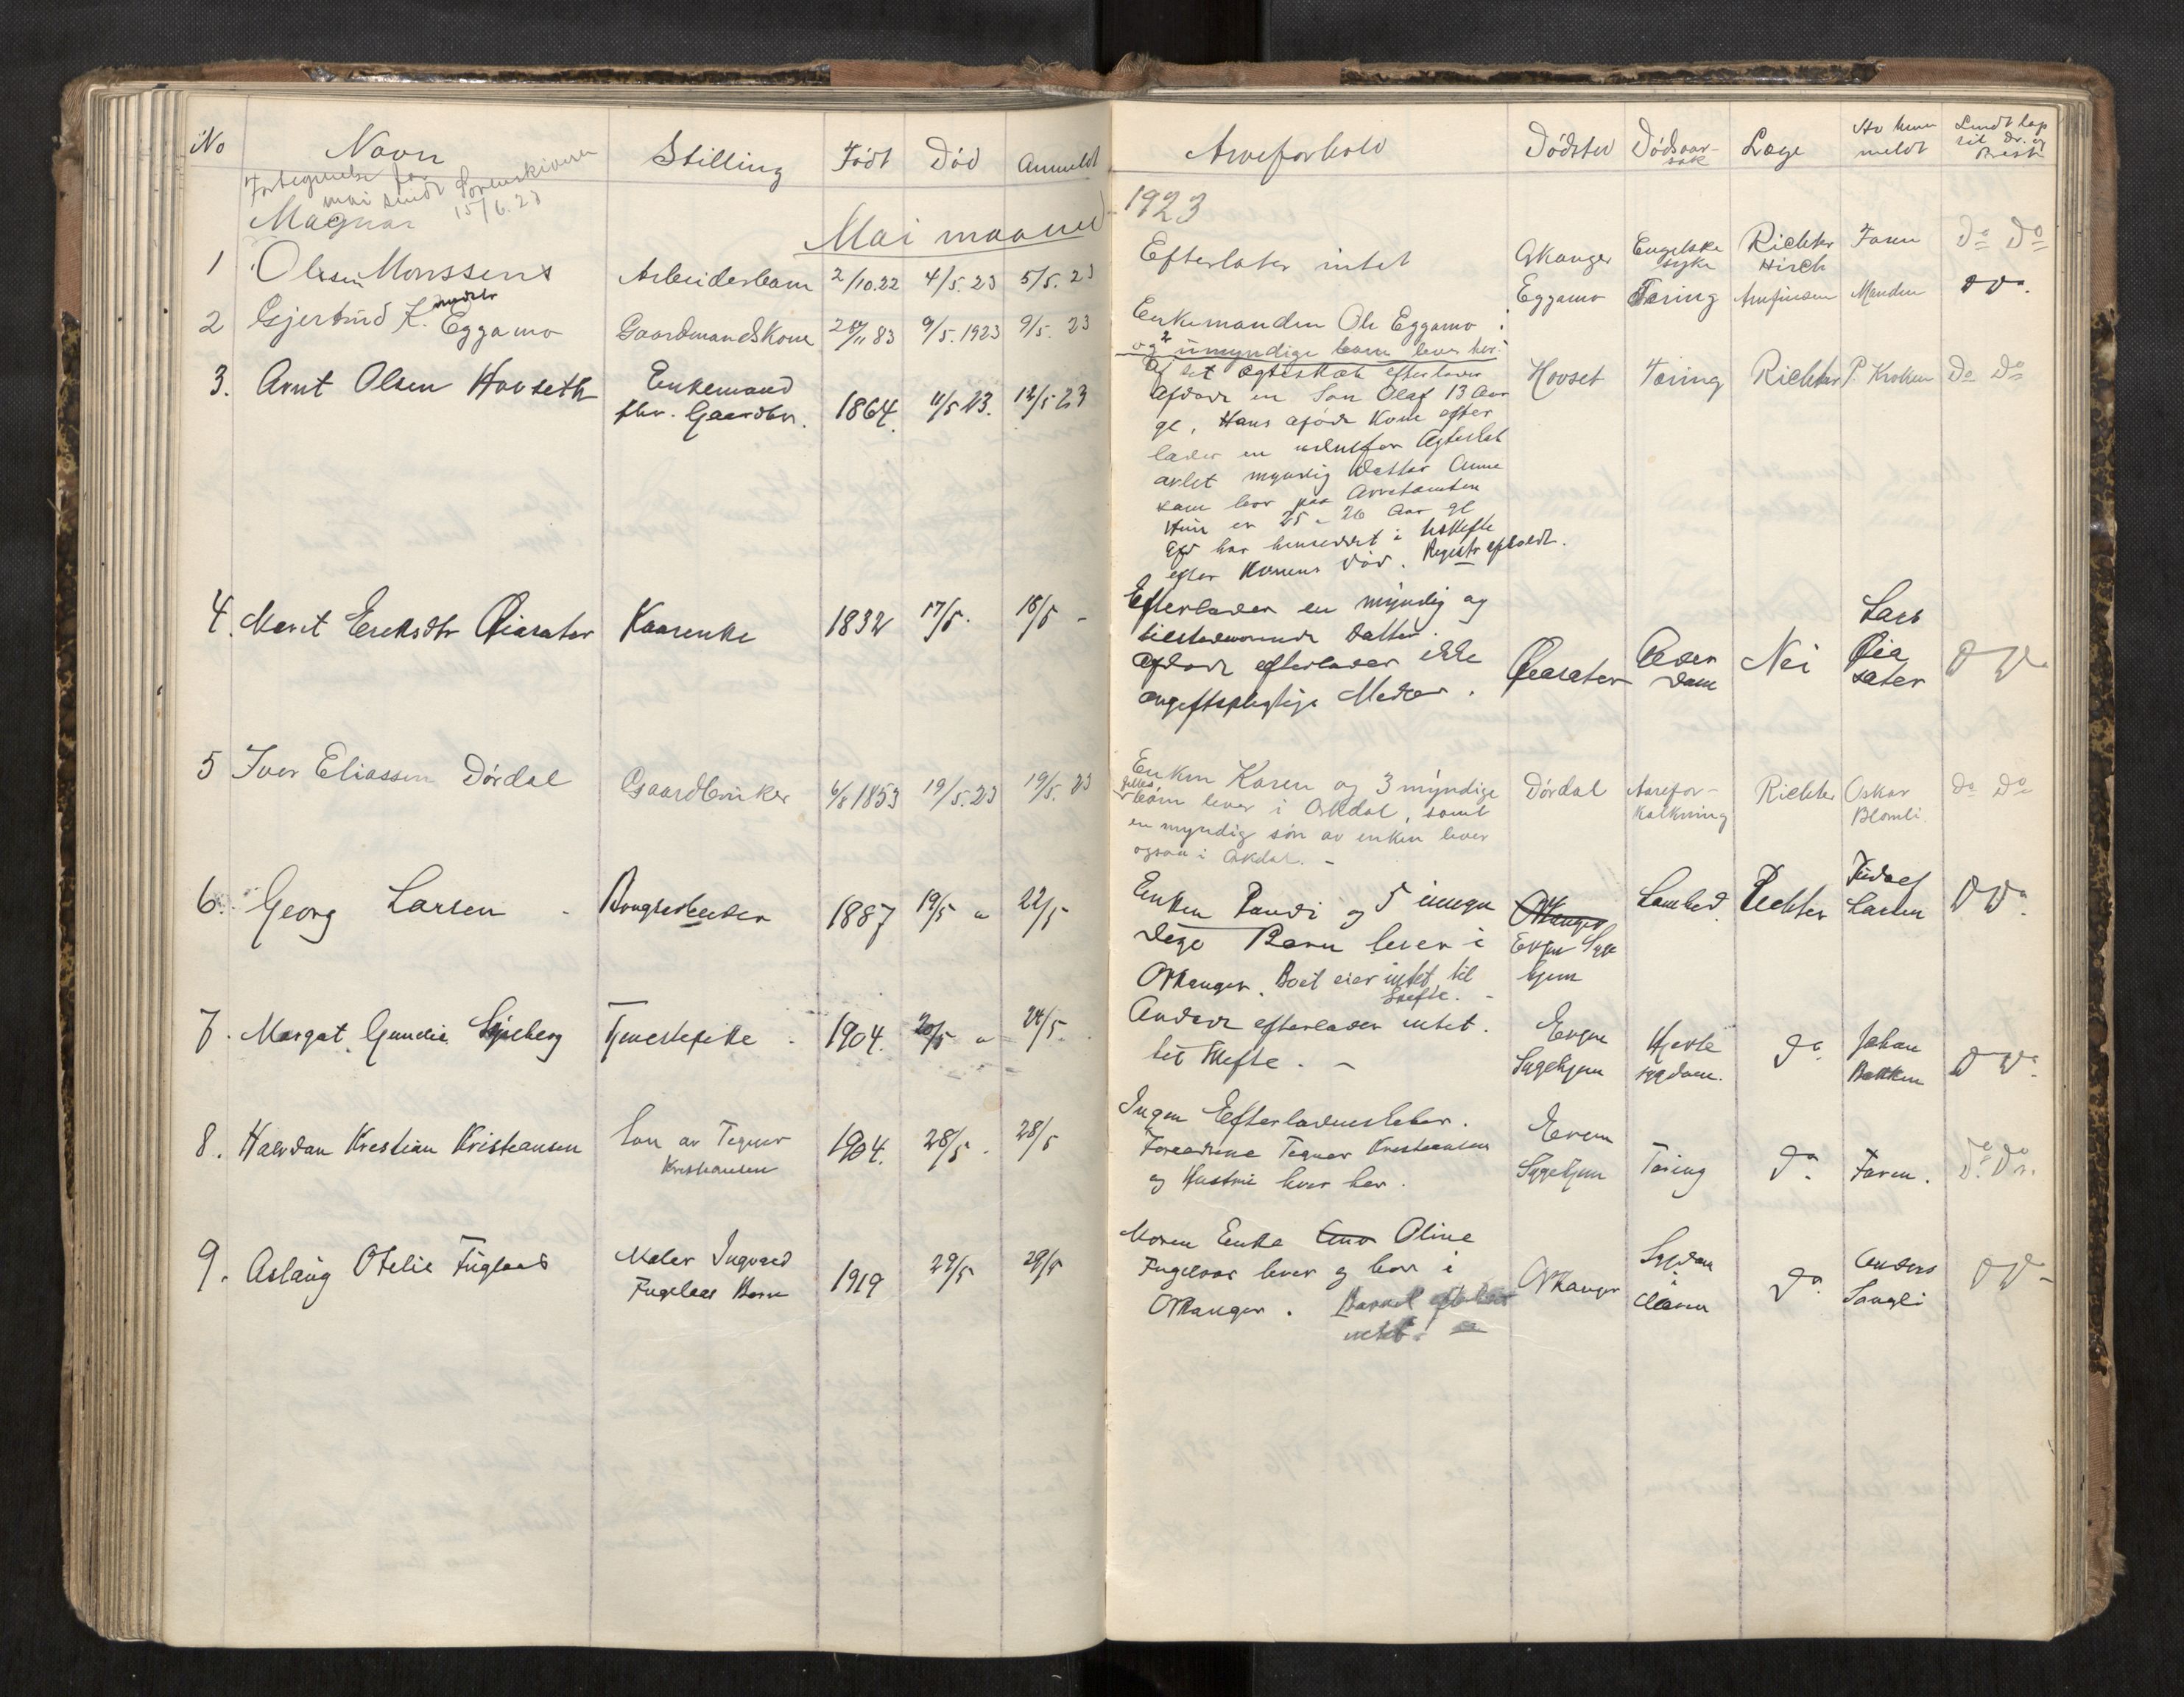 No Navn Stilling Født Død Anmeldt Arveforhold Dødsted Dødsaar-sak Læge Av hvem meldt Sendt lap til Dr. og Prest
Fortegnelse for
mai sendt Sorenskriveren
15/6.23
Mai maaned 1923
Magnar
1 Olsen Monssens Arbeiderbarn 2/10.22 4/5.23 5/5.23 Efterlater intet Orkanger Engelske syke Richter Hirch Faren Do Do
2 Gjertrud K. Eggamo Gaardmandskone 9/5.1923 9/5.23 Enkemanden Ole Eggamo
og 2 umyndige barn lever her. Eggamo Tæring Arnfinsen Manden Do.
3. Arnt Olsen Hovseth Enkemand
fhv. Gaardbr. 1864. 11/5 23. 12/5 23 Af det ægteskab efterlader
afdøde en Søn Olaf 13 Aar
gl. Hans afdøde Kone efter
lader en udenfor Ægteskab
avlet myndig Datter Anna
som bor paa Arvetomten
Hun er 25 a 26 Aar gl
Afd har hensiddet i uskifte
efter Konens død. Registr afholdt. Hovset Tæring Richter P. Kroken Do Do
4. Marit Eriksdtr Øiasæter Kaarenke 1832 17/5. 18/5 - Efterlader en myndig og
tilstedeværende Datter.
Afdøde efterlader ikke
avgiftspligtige Midler. Øiasæter Alder
dom Nei Lars
Øia
sæter Do
5 Iver Eliassen Dørdal Gaardbruker 6/8 1853 19/5.23 19/5.23 Enken Karen og 3 myndige
fælles barn lever i Orkdal, samt
en myndig søn av enken lever
ogsaa i Orkdal. - Dørdal Aarefor-
kalkning Richter Oskar
Blomli Do Do
6. Georg Larsen - Brugsarbeider 1887 19/5 " 22/5 Enken Randi og 5 umyn
dige Barn lever i
Orkanger. Boet eier intet til
Skifte. - Orkanger
Evjen Syge
hjem Lambed. Richter Larsen Do.
7. Margot Gunelie Sjøberg Tjenestepike - 1904. 20/5 " 24/5. Avdøde efterlader intet.
til Skifte. - Evjen
Sygehjem Hjerte
sygdom. Do. Johan
Bakken Do.
8. Halvdan Kristian Kristiansen Søn av Tegner
Kristiansen 1904. 28/5 - 28/5 Ingen Efterladenskaber.
Forældrene Tegner Kristiansen
og Hustru lever her. Evjen
Sygehjem Tæring Do. Faren. Do. Do.
9. Aslaug Otelie Fuglaas Maler Ingvard
Fuglaas Barn 1919 29/5 29/5 Moren Enke Oline
Fuglaas lever og bor i
Orkanger. Barnet efterlader
intet. Orkanger Sygdom
i Do. Anders
Sangli Do -